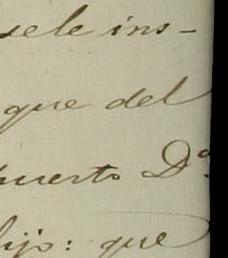 sele ins-
que del
puerto Dº
hijo: que